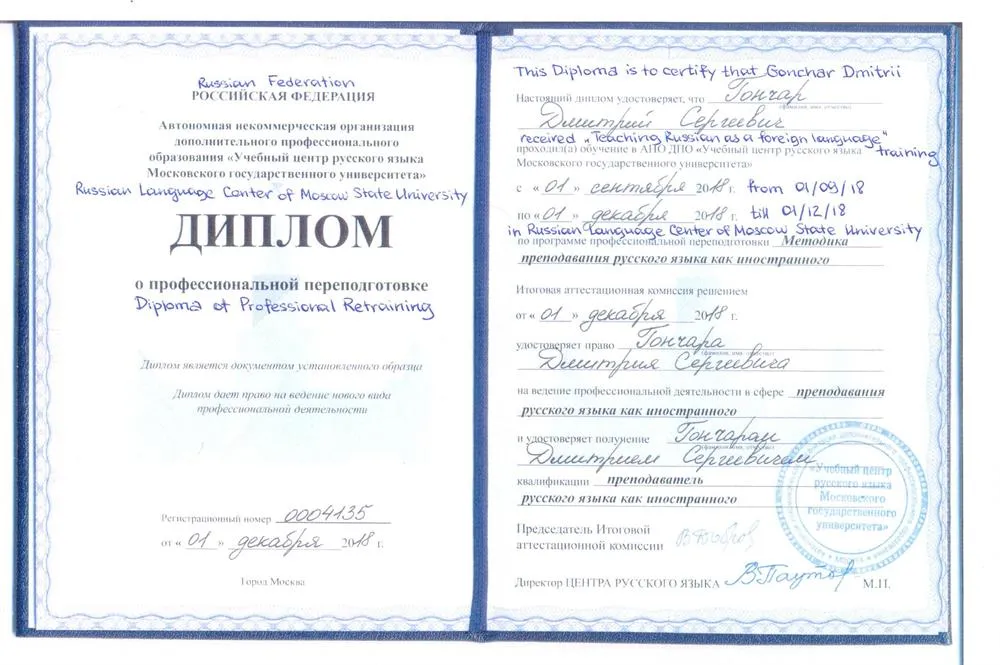 Russian Federation
РОССИЙСКАЯ ФЕДЕРАЦИЯ
Автономная некоммерческая организация
дополнительного профессионального
образования «Учебный центр русского языка
Московского государственного университета»
Russian Language Center of Moscow State University
ДИПЛОМ
о профессиональной переподготовке
Diploma of Professional Retraining
Диплом является документом установленного образца
Диплом дает право на ведение нового вида
профессиональной деятельности
Регистрационный номер 0004135
от « 01 » декабря 2018 г.
Город Москва
This Diploma is to certify that Gonchar Dmitrii
Настоящий диплом удостоверяет, что Гончар
(фамилия, имя, отчество)
Дмитрий Сергеевич
received "Teaching Russian as a foreign language"
training
проходил(а) обучение в АНО ДПО «Учебный центр русского языка
Московского государственного университета»
с « 01 » сентября 2018 г. from 01/09/18
по « 01 » декабря 2018 г. till 01/12/18
in Russian Language Center of Moscow State University
по программе профессиональной переподготовки Методика
преподавания русского языка как иностранного
Итоговая аттестационная комиссия решением
от « 01 » декабря 2018 г.
удостоверяет право Гончара
(фамилия, имя, отчество)
Дмитрия Сергеевича
на ведение профессиональной деятельности в сфере преподавания
русского языка как иностранного
и удостоверяет получение Гончаром
(фамилия, имя, отчество)
Дмитрием Сергеевичем
квалификации преподаватель
русского языка как иностранного
«Учебный центр
русского языка
Московского
государственного
университета»
Председатель Итоговой
аттестационной комиссии
Директор ЦЕНТРА РУССКОГО ЯЗЫКА М.П.